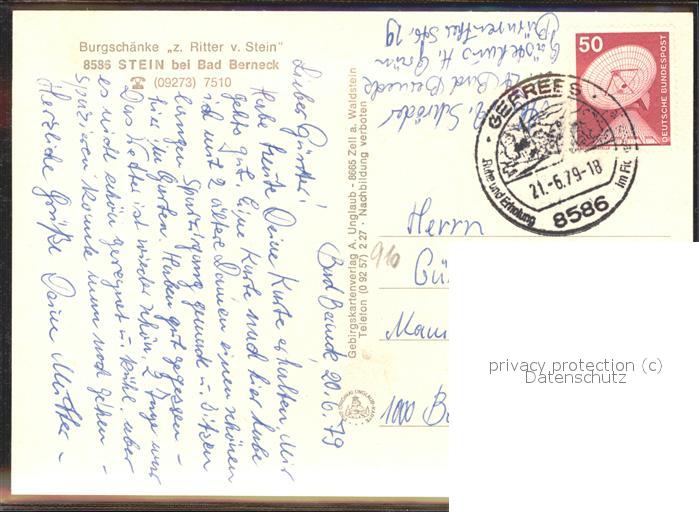 Burgschänke „z. Ritter v. Stein"
8586 STEIN bei Bad Berneck
(09273) 7510
Bad Berneck, 20.6.79
Lieber Günter!
Habe heute Deine Karte erhalten, mir
geht's gut. Eine Karte nach hier habe
ich mit 2 ältere Damen einen schönen
langen Spaziergang gemacht u. sitzen
hier im Garten. Haben gut gegessen –
Das Wetter ist wieder schön, 2 Tage war
es nicht schön geregnet u. kühl. aber
spazieren konnte man noch gehen –
Herzliche Grüße Deine Mutter –
Gebirgskartenverlag A. Unglaub · 8665 Zell a. Waldstein
Telefon (0 92 57) 2 27 · Nachbildung verboten
ORIGINAL UNGLAUB-KARTE
Schröder
Bad Berneck
50
DEUTSCHE BUNDESPOST
GEFREES
Ruhe und Erholung
im Fic
21.-6.79-18
8586
916
Herrn
Gü
1000 B
privacy protection (c)
Datenschutz